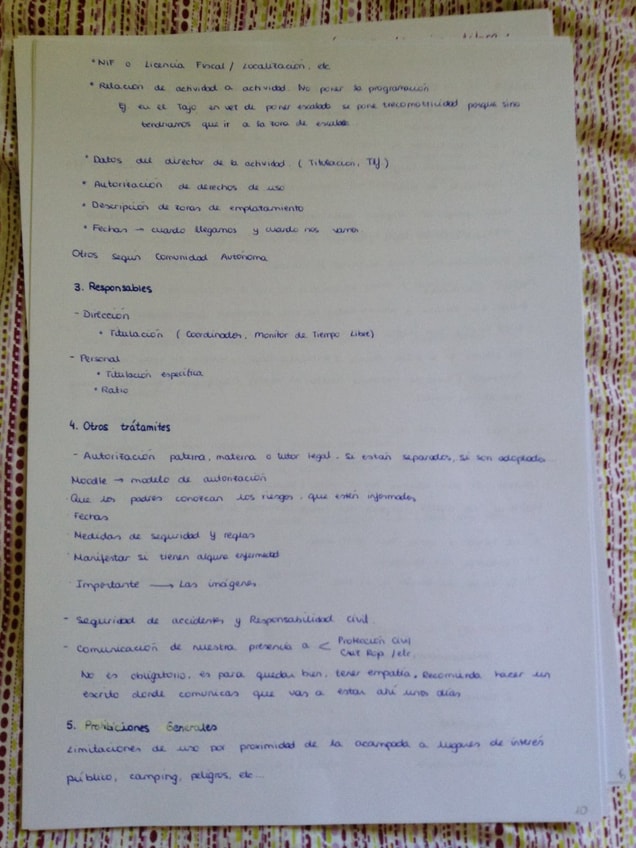 * NIF o Licencia Fiscal / Localización, etc
* Relación de actividad a actividad. No poner la programación.
Ej en el Tajo en vez de poner escalada se pone trecomotricidad porque sino
tendríamos que ir a la zona de escalada
* Datos del director de la actividad. (Titulación, TIJ)
* Autorización de derechos de uso
* Descripción de zonas de emplazamiento
* Fechas → cuando llegamos y cuando nos vamos.
Otros según Comunidad Autónoma
3. Responsables
- Dirección
* Titulación (Coordinador, Monitor de Tiempo Libre)
- Personal
* Titulación específica
* Ratio
4. Otros trátamites
- Autorización paterna, materna o tutor legal. Si están separados, si son adoptado...
Moodle → modelo de autorización
· Que los padres conozcan los riesgos, que estén informados
· Fechas
· Medidas de seguridad y reglas
· Manifestar si tienen alguna enfermedad
· Importante → Las imágenes.
- Seguridad de accidentes y Responsabilidad Civil.
- Comunicación de nuestra presencia a < Protección Civil
Cruz Roja / etc.
No es obligatorio, es para quedar bien, tener empatía. Recomienda hacer un
escrito donde comunicas que vas a estas ahí unos días
5. Prohibiciones Generales
Limitaciones de uso por proximidad de la acampada a lugares de interés
público, camping, peligros, etc...
10